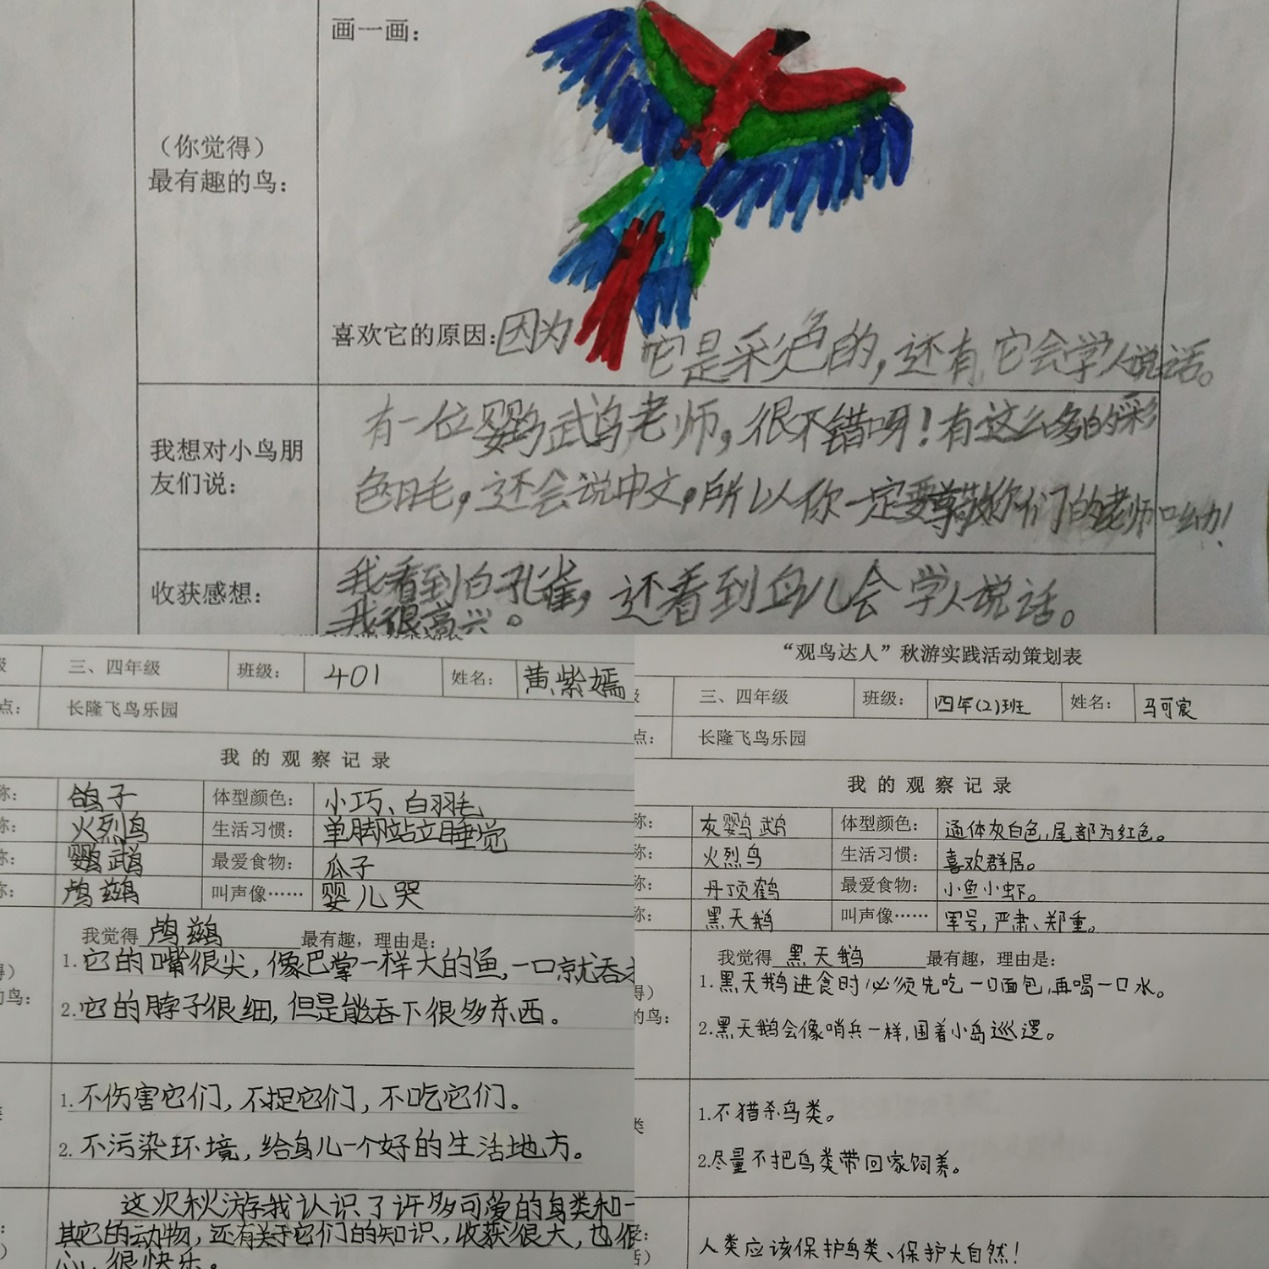 画一画：
（你觉得）
最有趣的鸟：
喜欢它的原因：因为它是彩色的，还有，它会学人说话。
我想对小鸟朋
友们说：
有一位鹦鹉鸟老师，很不错呀！有这么多的彩
色羽毛，还会说中文，所以你一定要尊敬你们的老师呦！
收获感想：
我看到白孔雀，还看到鸟儿会学人说话。
我很高兴。
级 三、四年级 班级： 401 姓名： 黄紫嫣
点： 长隆飞鸟乐园
我的观察记录
称： 鸽子 体型颜色： 小巧、白羽毛
称： 火烈鸟 生活习惯： 单脚站立睡觉
称： 鹦鹉 最爱食物： 瓜子
称： 鸬鹚 叫声像…… 婴儿哭
我觉得 鸬鹚 最有趣，理由是：
1.它的嘴很尖，像巴掌一样大的鱼，一口就吞
得）
的鸟：
2.它的脖子很细，但是能吞下很多东西。
1.不伤害它们，不捉它们，不吃它们。
2.不污染环境，给鸟儿一个好的生活地方。
这次秋游我认识了许多可爱的鸟类和一
其它的动物，还有关于它们的知识，收获很大，也很
心，很快乐。
“观鸟达人”秋游实践活动策划表
级 三、四年级 班级： 四年(2)班 姓名： 马可宸
点： 长隆飞鸟乐园
我的观察记录
称： 灰鹦鹉 体型颜色： 通体灰白色，尾部为红色。
称： 火烈鸟 生活习惯： 喜欢群居。
称： 丹顶鹤 最爱食物： 小鱼小虾。
称： 黑天鹅 叫声像…… 军号，严肃、郑重。
我觉得 黑天鹅 最有趣，理由是：
1.黑天鹅进食时必须先吃一口面包，再喝一口水。
得）
的鸟：
2.黑天鹅会像哨兵一样，围着小岛巡逻。
1.不猎杀鸟类。
类
2.尽量不把鸟类带回家饲养。
人类应该保护鸟类、保护大自然！